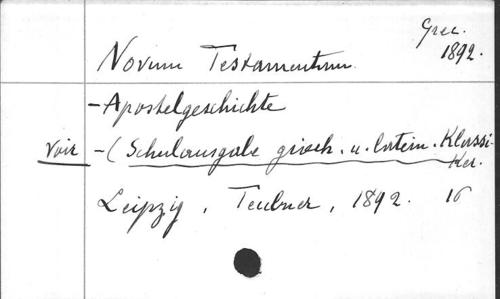 Grec.
1892.
Novum Testamentum
- Apostelgeschichte
Voir - (Schulausgabe griech. u. latein. Klassi-
ker.
Leipzig, Teubner, 1892. 16